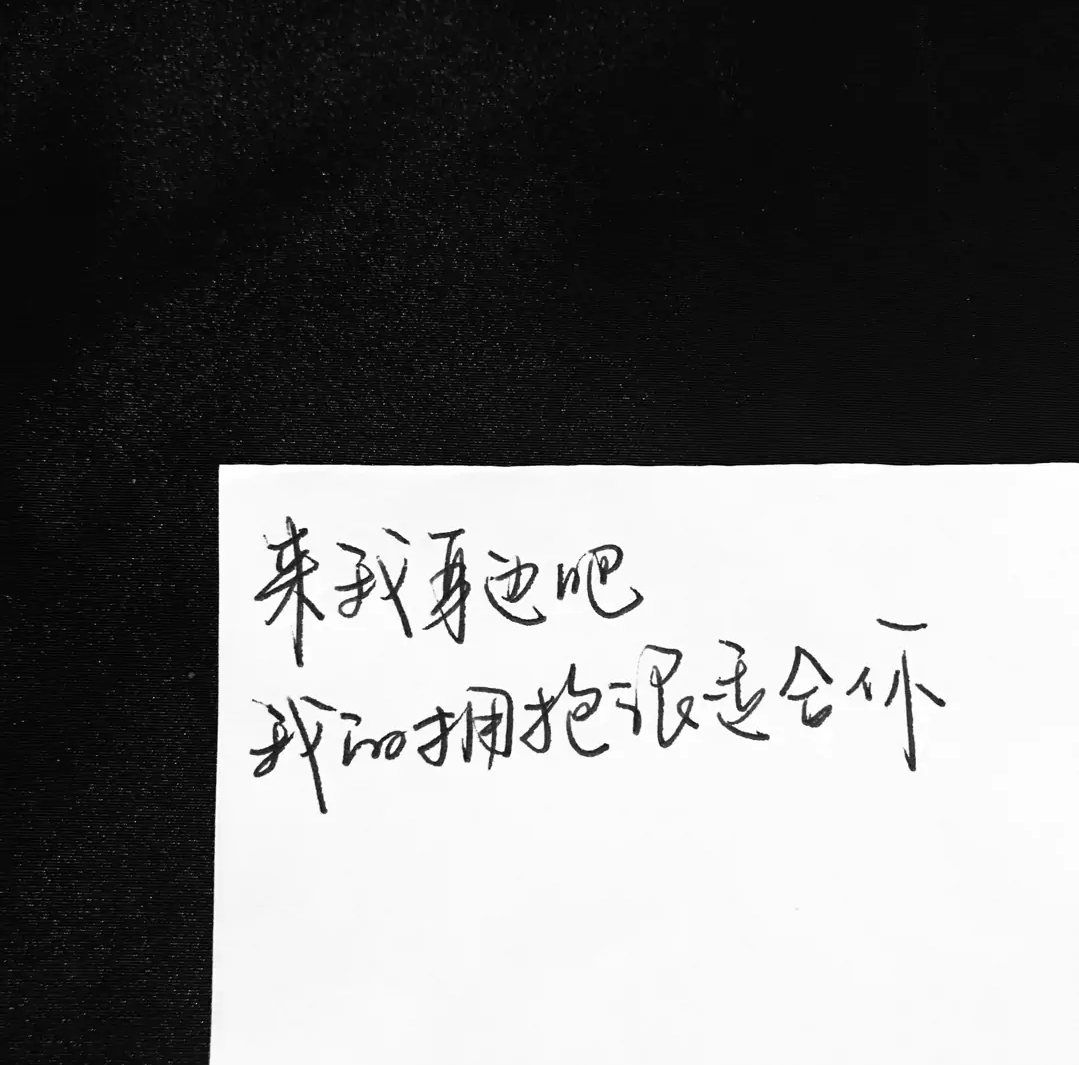 来我身边吧
我的拥抱很适合你